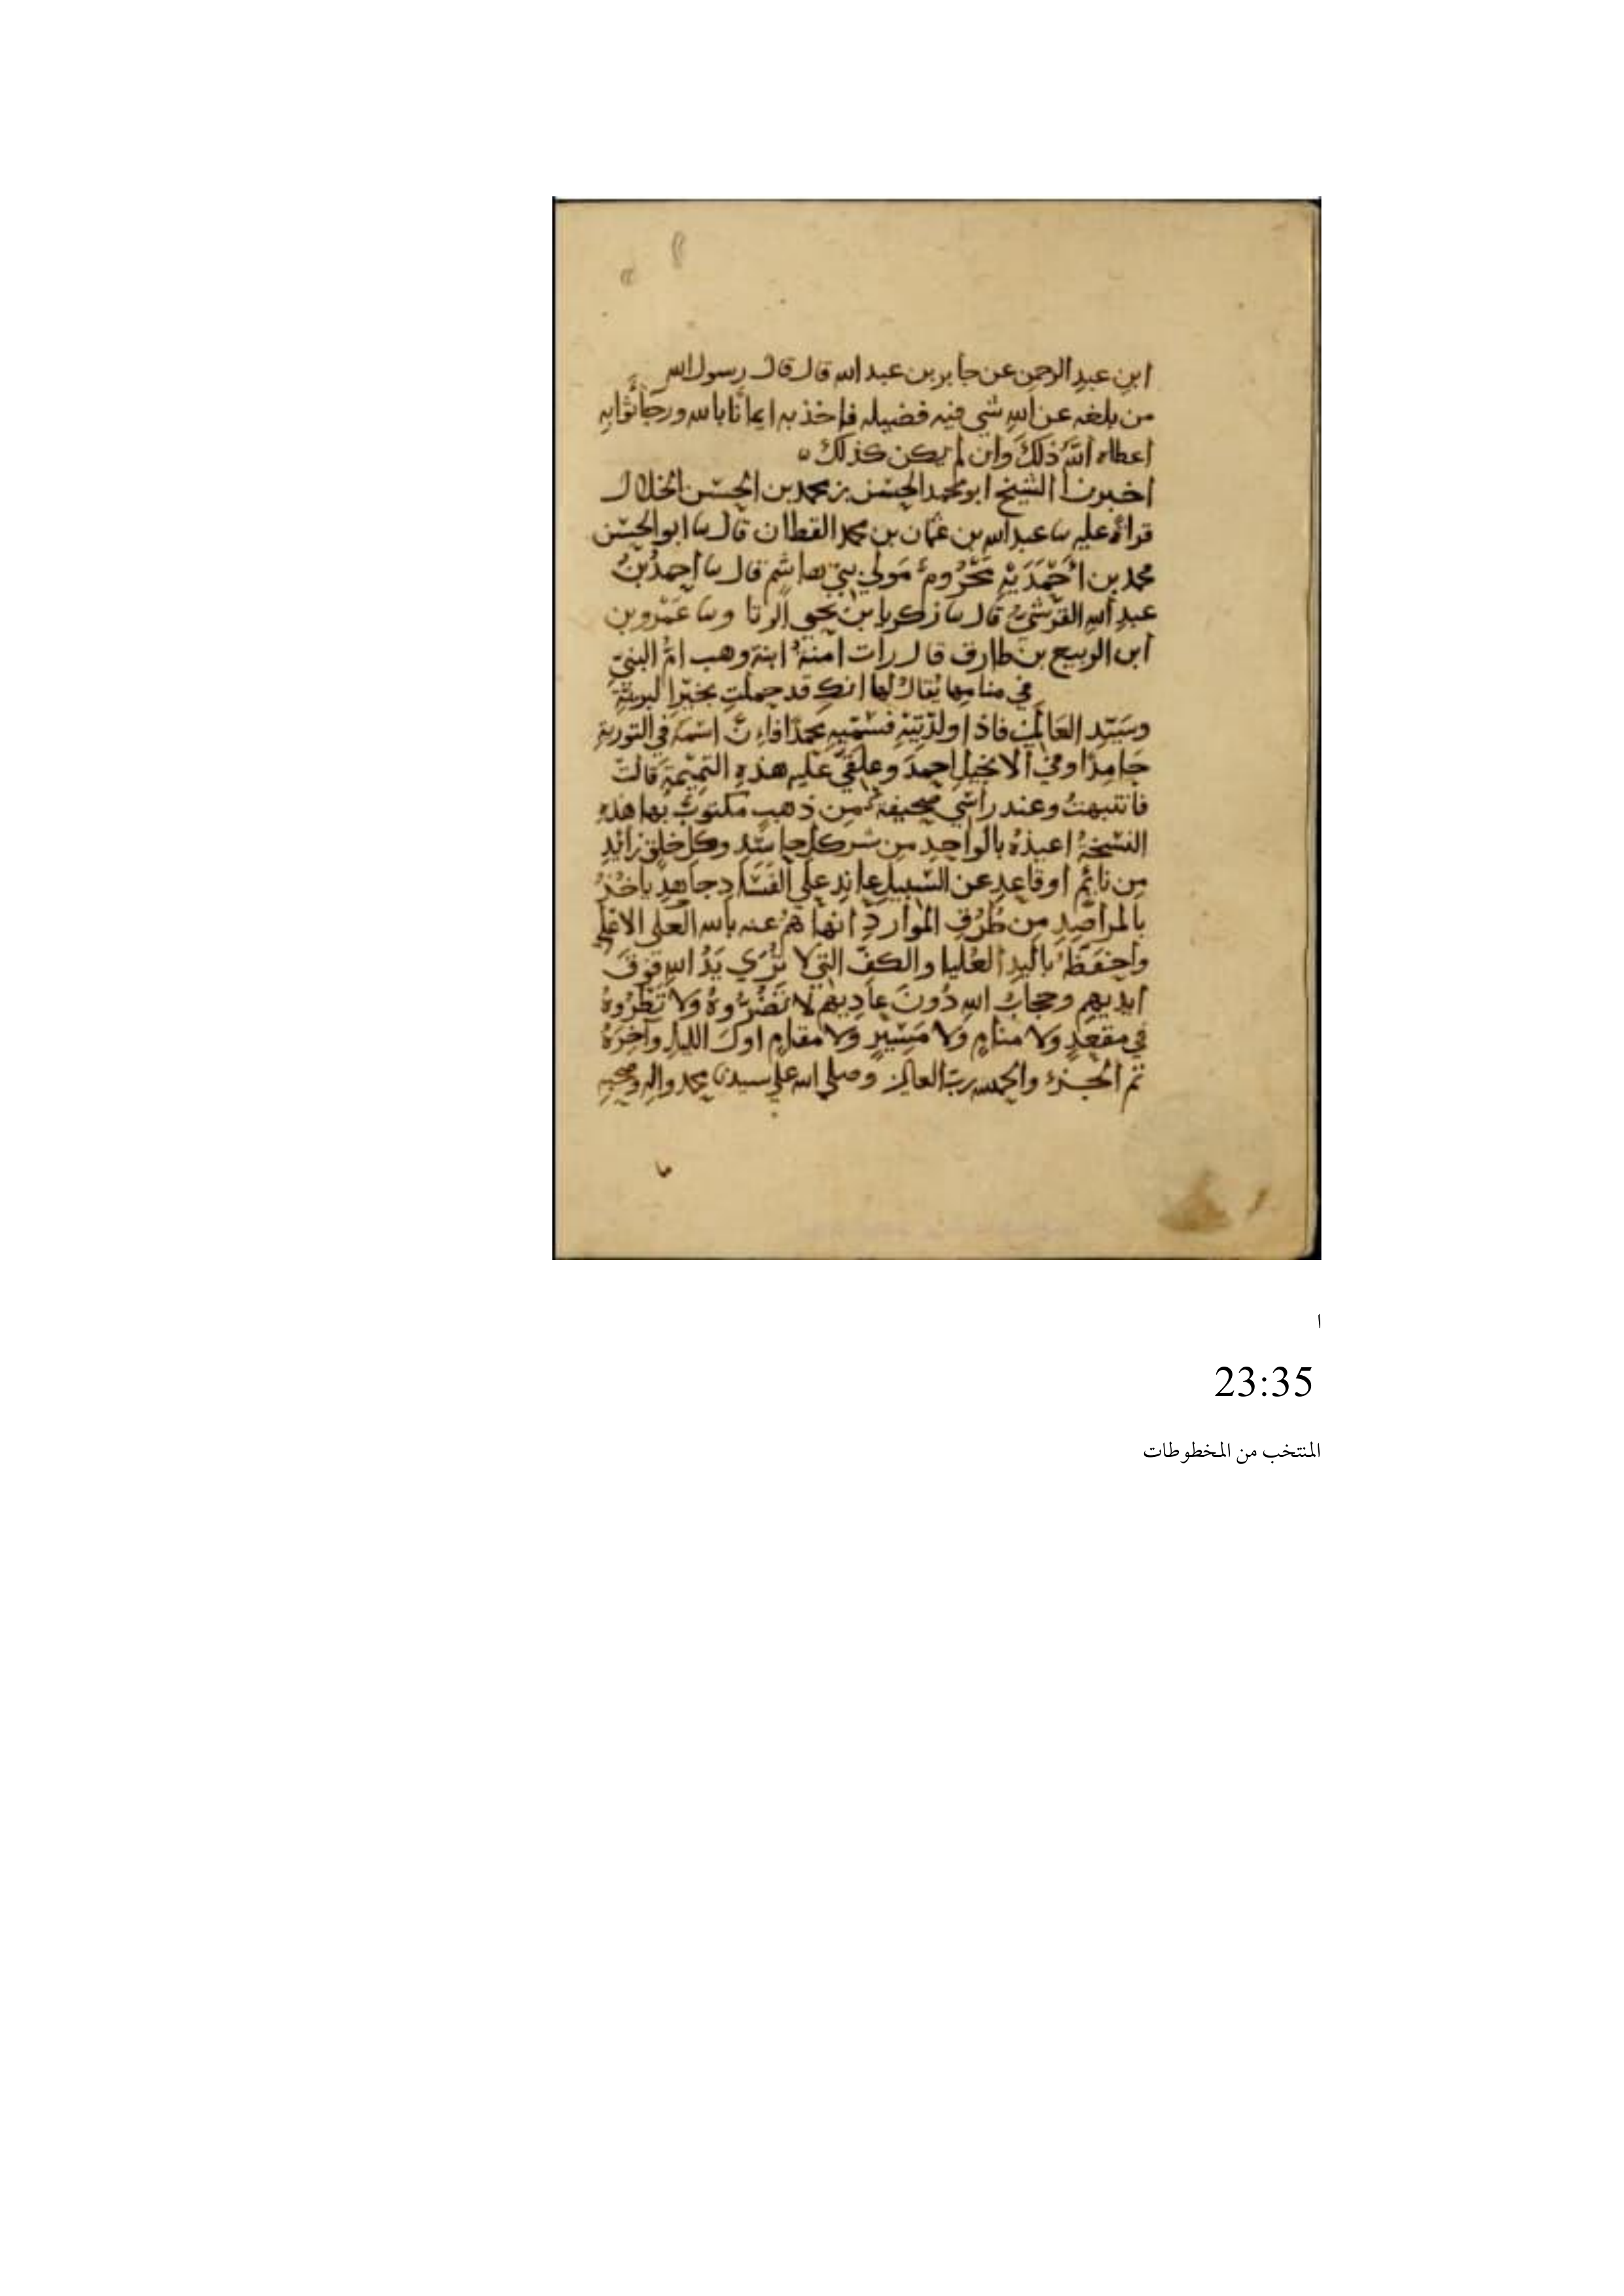 ابن عبد الرحمن عن جابر بن عبد الله قال قال رسول الله
من بلغه عن الله شي فيه فضيله فاخذ به ايمانا بالله ورجا ثوابه
اعطاه الله ذلك وان لم يكن كذلك ه
اخبرنا الشيخ ابو محمد الحسن بن محمد بن الحسن الخلال
قراة عليه سا عبد الله بن عثمان بن محمد القطان قال سا ابو الحسن
محمد بن احمد بن مخزوم مولى بني هاشم قال سا احمد بن
عبد الله القرشي قال سا زكريا بن يحيى وسا عمرو بن
ابن الربيع بن طارق قال رات امنة ابنة وهب ام النبي
في منامها يقال لها انك قد حملت بخير البرية
وسيد العالمين فاذا ولدتيه فسميه محمدا فان اسمه في التورية
حامدا وفي الانجيل احمد وعلقي عليه هذه التميمة قالت
فانتبهت وعند راسي صحيفة من ذهب مكتوب بها هذه
النسخة اعيذه بالواحد من شر كل حاسد وكل خلق زائد
من نائم او قاعد عن السبيل عاند على الفساد جاهد ياخذ
بالمراصد من طرق الموارد انهاهم عنه بالله العلى الاعلى
واحفظه باليد العليا والكف التي لا ترى يد الله فوق
ايديهم وحجاب الله دون عاديهم لا تضروه ولا تطروه
في مقعد ولا منام ولا مسير ولا مقام اول الليل وآخره
تم الجزء والحمد لله رب العالمين وصلى الله على سيدنا محمد واله وصحبه
ا
23:35
المنتخب من المخطوطات